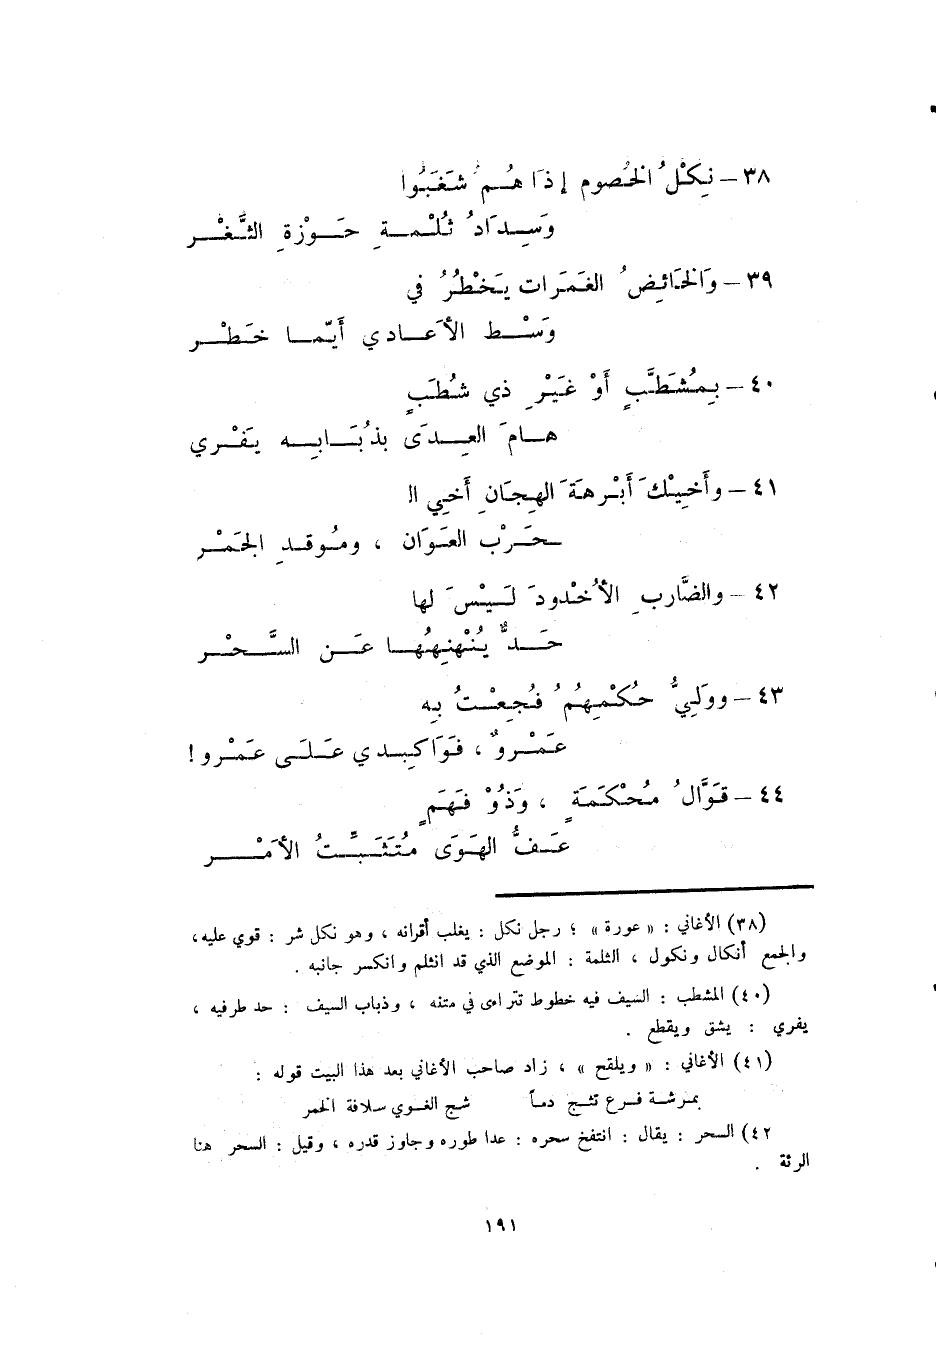 ٣٨ – نِكْلُ الخُصومِ إذَا هُمُ شَغَبُوا
وَسِدَادُ ثُلْمَةِ حَوْزَةِ الثَّغْرِ
٣٩ – وَالخَائِضُ الغَمَرَاتِ يَخْطُرُ في
وَسْطِ الأَعادي أَيّما خَطْرِ
٤٠ – بِمُشَطَّبٍ أوْ غَيْرِ ذي شُطَبٍ
هامَ العِدَى بذُبَابِه يَفْري
٤١ – وأَخيكَ أَبْرهَةَ الهِجَانِ أَخي الـ
ـحَرْبِ العَوَانِ ، ومُوقدِ الجَمْرِ
٤٢ – والضَّارِبِ الأُخْدودَ لَيْسَ لها
حَدٌّ يُنَهْنِهُها عَنِ السَّحْرِ
٤٣ – ووَلِيُّ حُكْمِهِمُ فُجِعْتُ بِهِ
عَمْروٌ ، فَوَاكبدي عَلَى عَمْرو !
٤٤ – قَوَّالُ مُحْكَمَةٍ ، وَذُوْ فَهَمٍ
عَفُّ الهَوَى مُتَثَبِّتُ الأَمْرِ
(٣٨) الأغاني : « عورة » ؛ رجل نكل : يغلب أقرانه ، وهو نكل شر : قوي عليه،
والجمع أنكال ونكول ، الثلمة : الموضع الذي قد انثلم وانكسر جانبه .
(٤٠) المشطب : السيف فيه خطوط تتراءى في متنه ، وذباب السيف : حد طرفيه ،
يفري : يشق ويقطع .
(٤١) الأغاني : « ويلقح » ، زاد صاحب الأغاني بعد هذا البيت قوله :
بمرشة فرع تثج دماً شج الغوي سلافة الخمر
٤٢) السحر : يقال : انتفخ سحره : عدا طوره وجاوز قدره ، وقيل : السحر هنا
الرئة .
١٩١